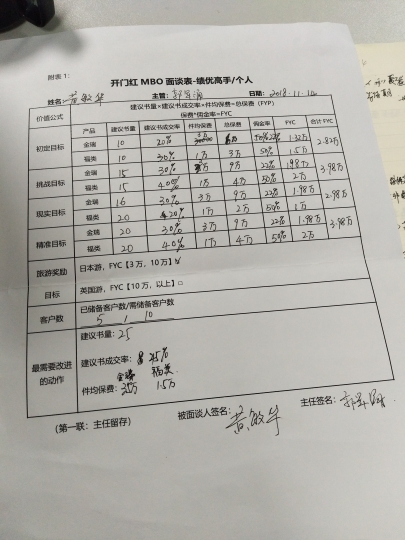 附表 1:
开门红 MBO 面谈表-绩优高手/个人
姓名: 黄敏华 主管: 日期: 2018-11-14
价值公式 建议书量×建议书成交率×件均保费=总保费 (FYP)
保费*佣金率=FYC
产品 建议书量 建议书成交率 件均保费 总保费 佣金率 FYC 合计 FYC
初定目标 金瑞 10 20% 6万 22% 1.32万 2.82万
福类 10 30% 1万 3万 50% 1.5万
挑战目标 金瑞 15 20% 3万 9万 22% 1.98万 3.98万
福类 15 40% 1万 4万 50% 2万
现实目标 金瑞 16 30% 3万 9万 22% 1.98万 2.98万
福类 20 20% 1万 2万 50% 1万
精准目标 金瑞 20 30% 3万 9万 22% 1.98万 3.98万
福类 20 40% 1万 4万 50% 2万
旅游奖励 日本游, FYC【3万, 10万】☑
目标 英国游, FYC【10万, 以上】□
客户数 已储备客户数/需储备客户数
5 / 10
最需要改进的动作 建议书量: 25
建议书成交率: 25%
金瑞 福类
件均保费: 3万 1.5万
(第一联: 主任留存) 被面谈人签名: 黄敏华 主任签名: